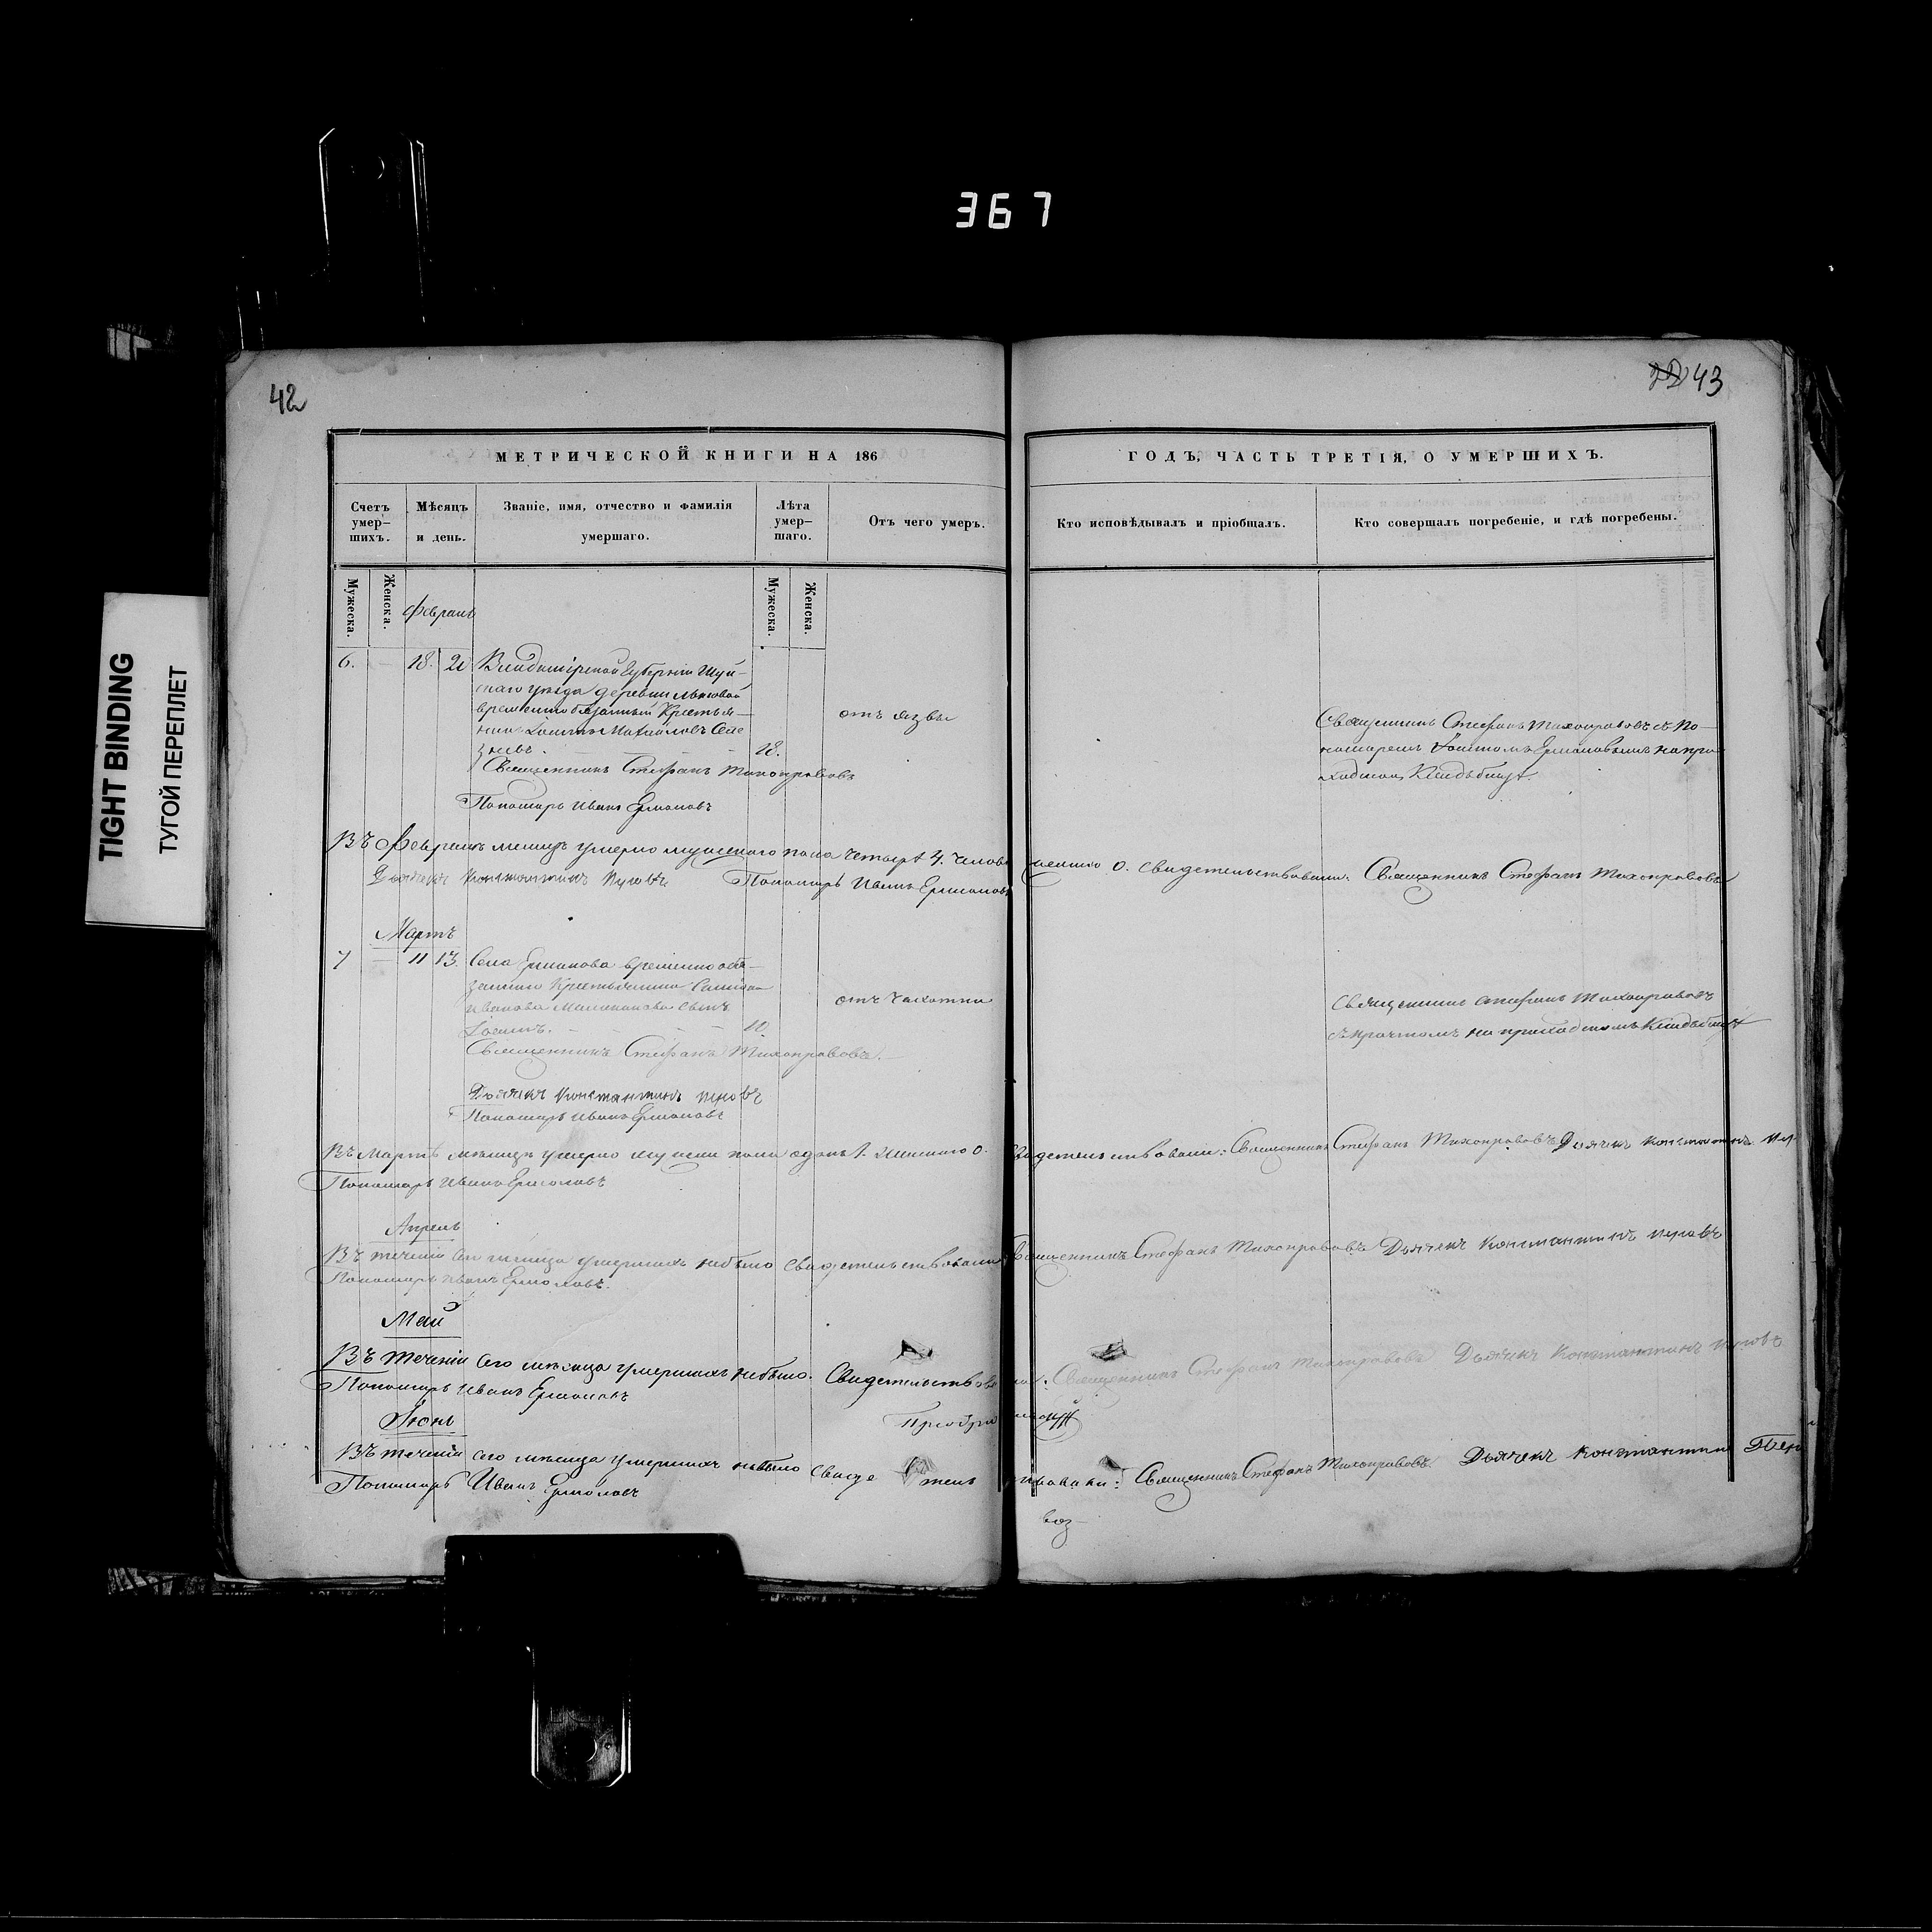 367
42
43
TIGHT BINDING
ТУГОЙ ПЕРЕПЛЕТ
МЕТРИЧЕСКОЙ КНИГИ НА 186
ГОДЪ, ЧАСТЬ ТРЕТІЯ, О УМЕРШИХЪ.
Счетъ умер-шихъ.
Мѣсяцъ и день.
Званіе, имя, отчество и фамилія умершаго.
Лѣта умер-шаго.
Отъ чего умеръ.
Кто исповѣдывалъ и пріобщалъ.
Кто совершалъ погребеніе, и гдѣ погребены.
Мужеска.
Женска.
Мужеска.
Женска.
Февраль
6. — 18. 20 Владимірской Губерніи Шуй-
скаго уѣзда деревни
временнообязанный Крестья-
нинъ Михайловъ
18.
отъ язвы
Священникъ Стефанъ Тихонравовъ съ По-
номаремъ Іоанномъ Ермоловымъ на при-
ходскомъ Кладбищѣ.
Священникъ Стефанъ Тихонравовъ
Пономарь Иванъ Ермоловъ
Въ Февралѣ месяцѣ умерло мужескаго пола четыре 4. женскаго 0. Свидетельствовали: Священникъ Стефанъ Тихонравовъ
Дьячекъ Константинъ Пономарь Иванъ Ермоловъ
Мартъ
7 — 11 13. Села временнообя-
заннаго Крестьянина
Иванова сынъ
Іоаннъ. 10
отъ чахотки
Священникъ Стефанъ Тихонравовъ
съ причтомъ на приходскомъ Кладбищѣ
Священникъ Стефанъ Тихонравовъ.
Дьячекъ Константинъ
Пономарь Иванъ Ермоловъ
Въ Мартѣ мѣсяцѣ умерло мужеска пола одинъ 1. женскаго 0. Свидетельствовали: Священникъ Стефанъ Тихонравовъ Дьячекъ Константинъ
Пономарь Иванъ Ермоловъ
Апрель
Въ теченіи сего мѣсяца умершихъ небыло Свидетельствовали Священникъ Стефанъ Тихонравовъ Дьячекъ Константинъ
Пономарь Иванъ Ермоловъ.
Май
Въ теченіи сего мѣсяца умершихъ небыло. Свидетельствовали: Священникъ Стефанъ Тихонравовъ Дьячекъ Константинъ
Пономарь Иванъ Ермоловъ
Іюнь
Въ теченіи сего мѣсяца умершихъ небыло Свидетельствовали: Священникъ Стефанъ Тихонравовъ. Дьячекъ Константинъ
Пономарь Иванъ Ермоловъ